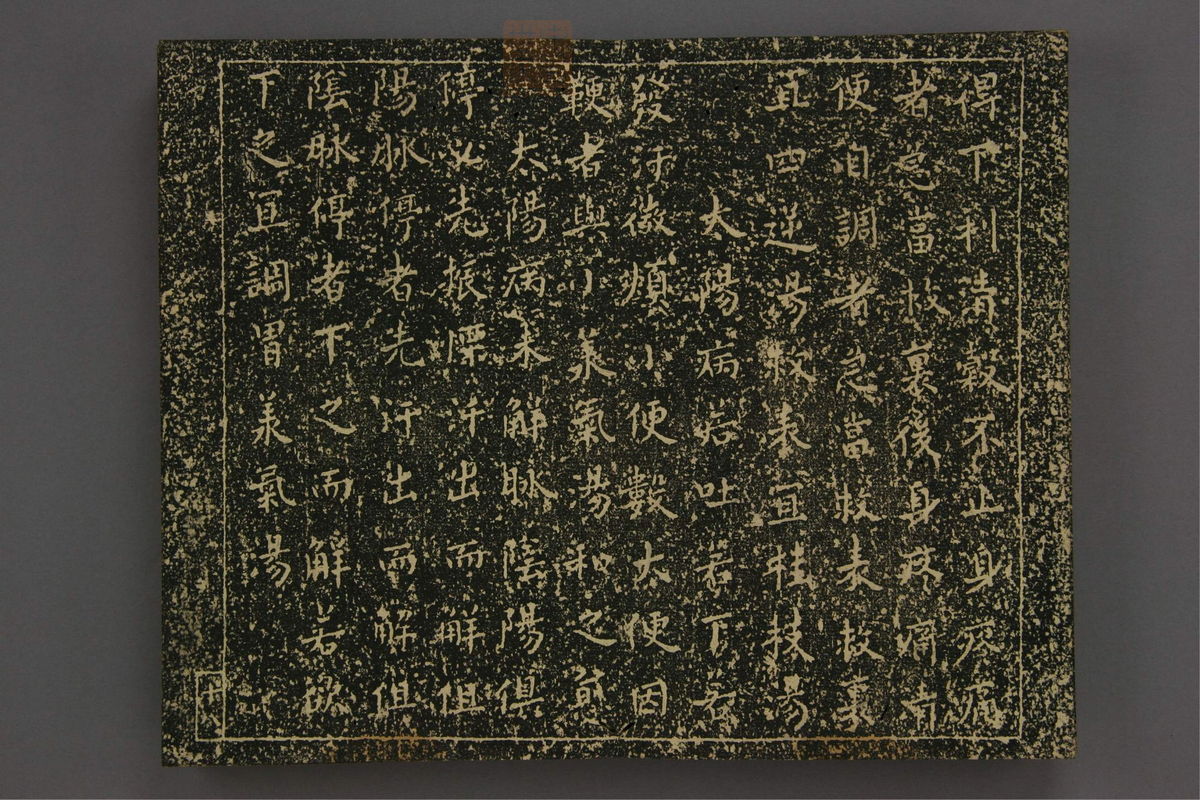 得下利清穀不止身疼痛
者急當救裏後身疼痛清
便自調者急當救表救裏
宜四逆湯救表宜桂枝湯
太陽病若吐若下若
發汗微煩小便數大便因
鞕者與小承氣湯和之愈
太陽病未解脉陰陽俱
停必先振慄汗出而解但
陽脉停者先汗出而解但
陰脉停者下之而解若欲
下之宜調胃承氣湯